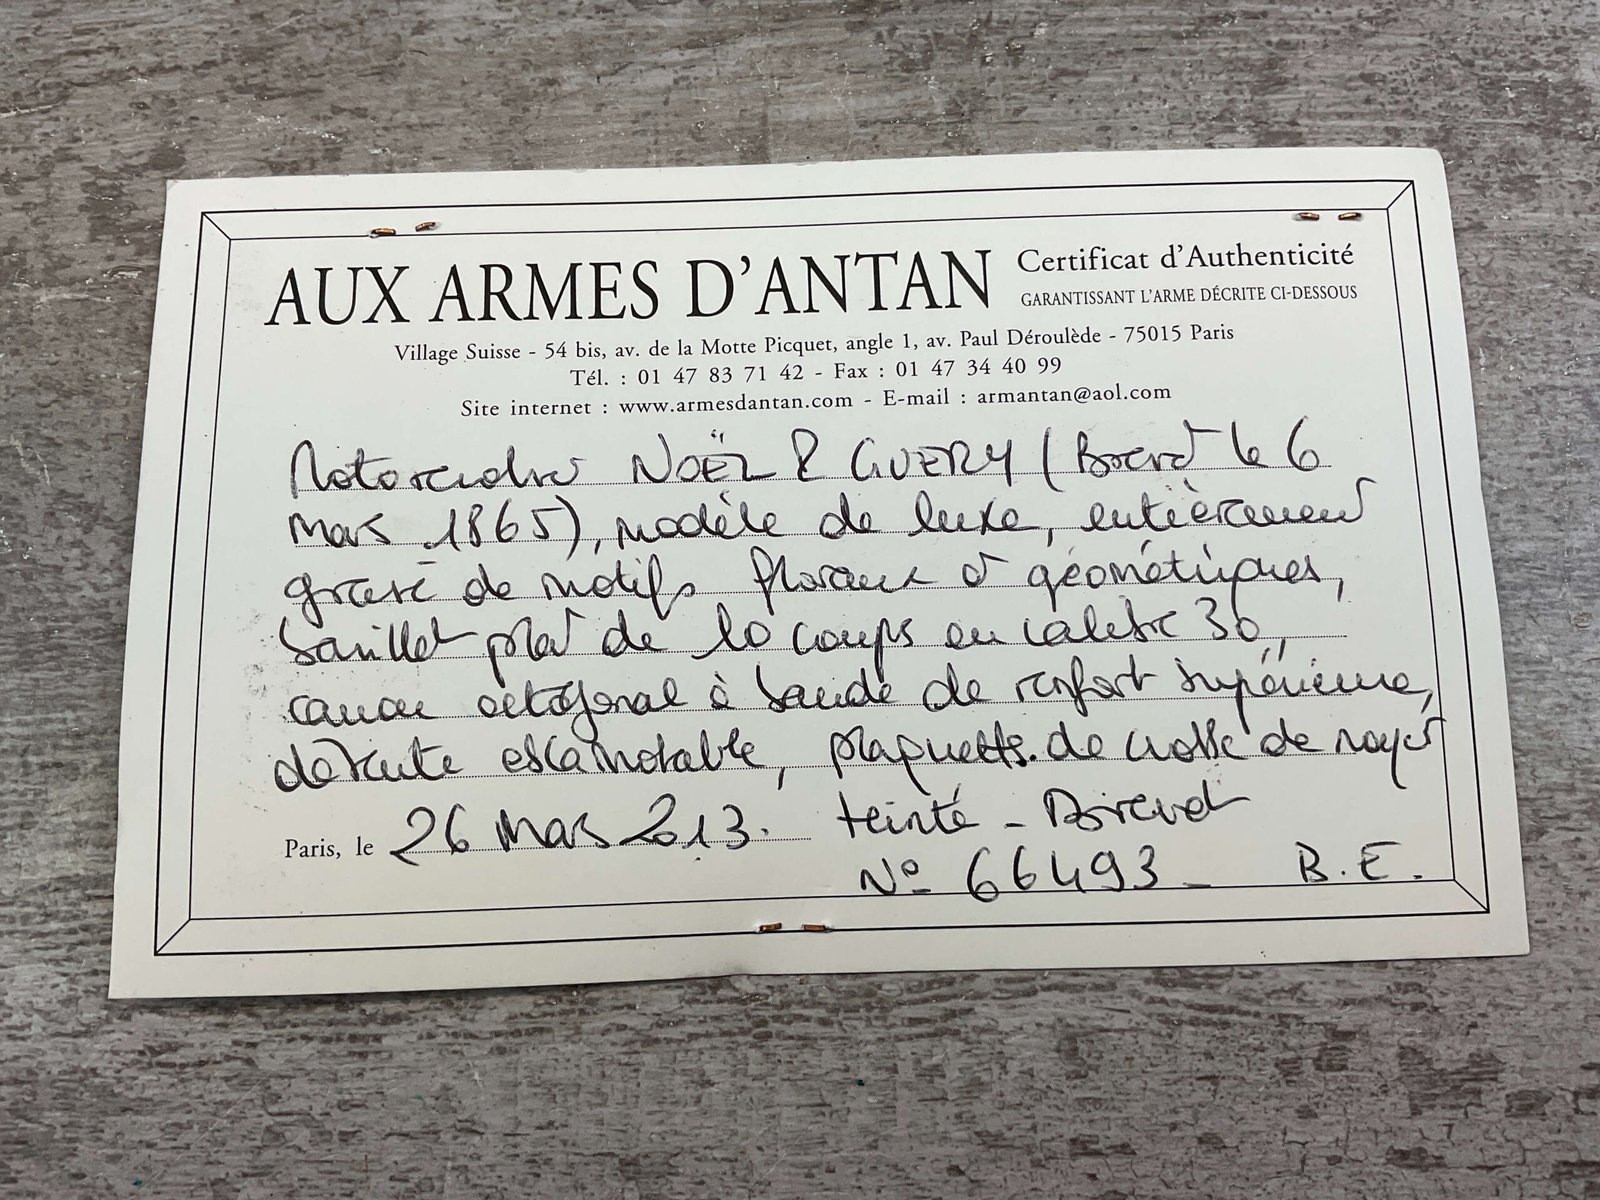 AUX ARMES D'ANTAN
Certificat d'Authenticité
GARANTISSANT L'ARME DÉCRITE CI-DESSOUS
Village Suisse - 54 bis, av. de la Motte Picquet, angle 1, av. Paul Déroulède - 75015 Paris
Tél. : 01 47 83 71 42 - Fax : 01 47 34 40 99
Site internet : www.armesdantan.com - E-mail : armantan@aol.com
NOËL & GUERY (Brevet le 6
mars 1865), modèle de luxe, entièrement
gravé de motifs floraux et géométriques,
barillet plat de 10 coups en calibre 30,
canon octogonal à bande de renfort supérieure,
détente escamotable, plaquettes de crosse de noyer
teinté - Brevet
Paris, le 26 mars 2013.
N° 66493 - B.E.